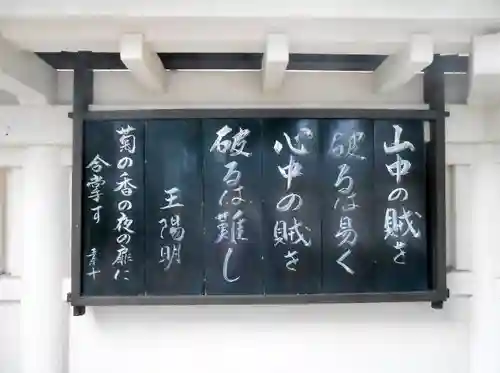 山中の賊を
破るは易く
心中の賊を
破るは難し
王陽明
菊の香の夜の扉に
合掌す